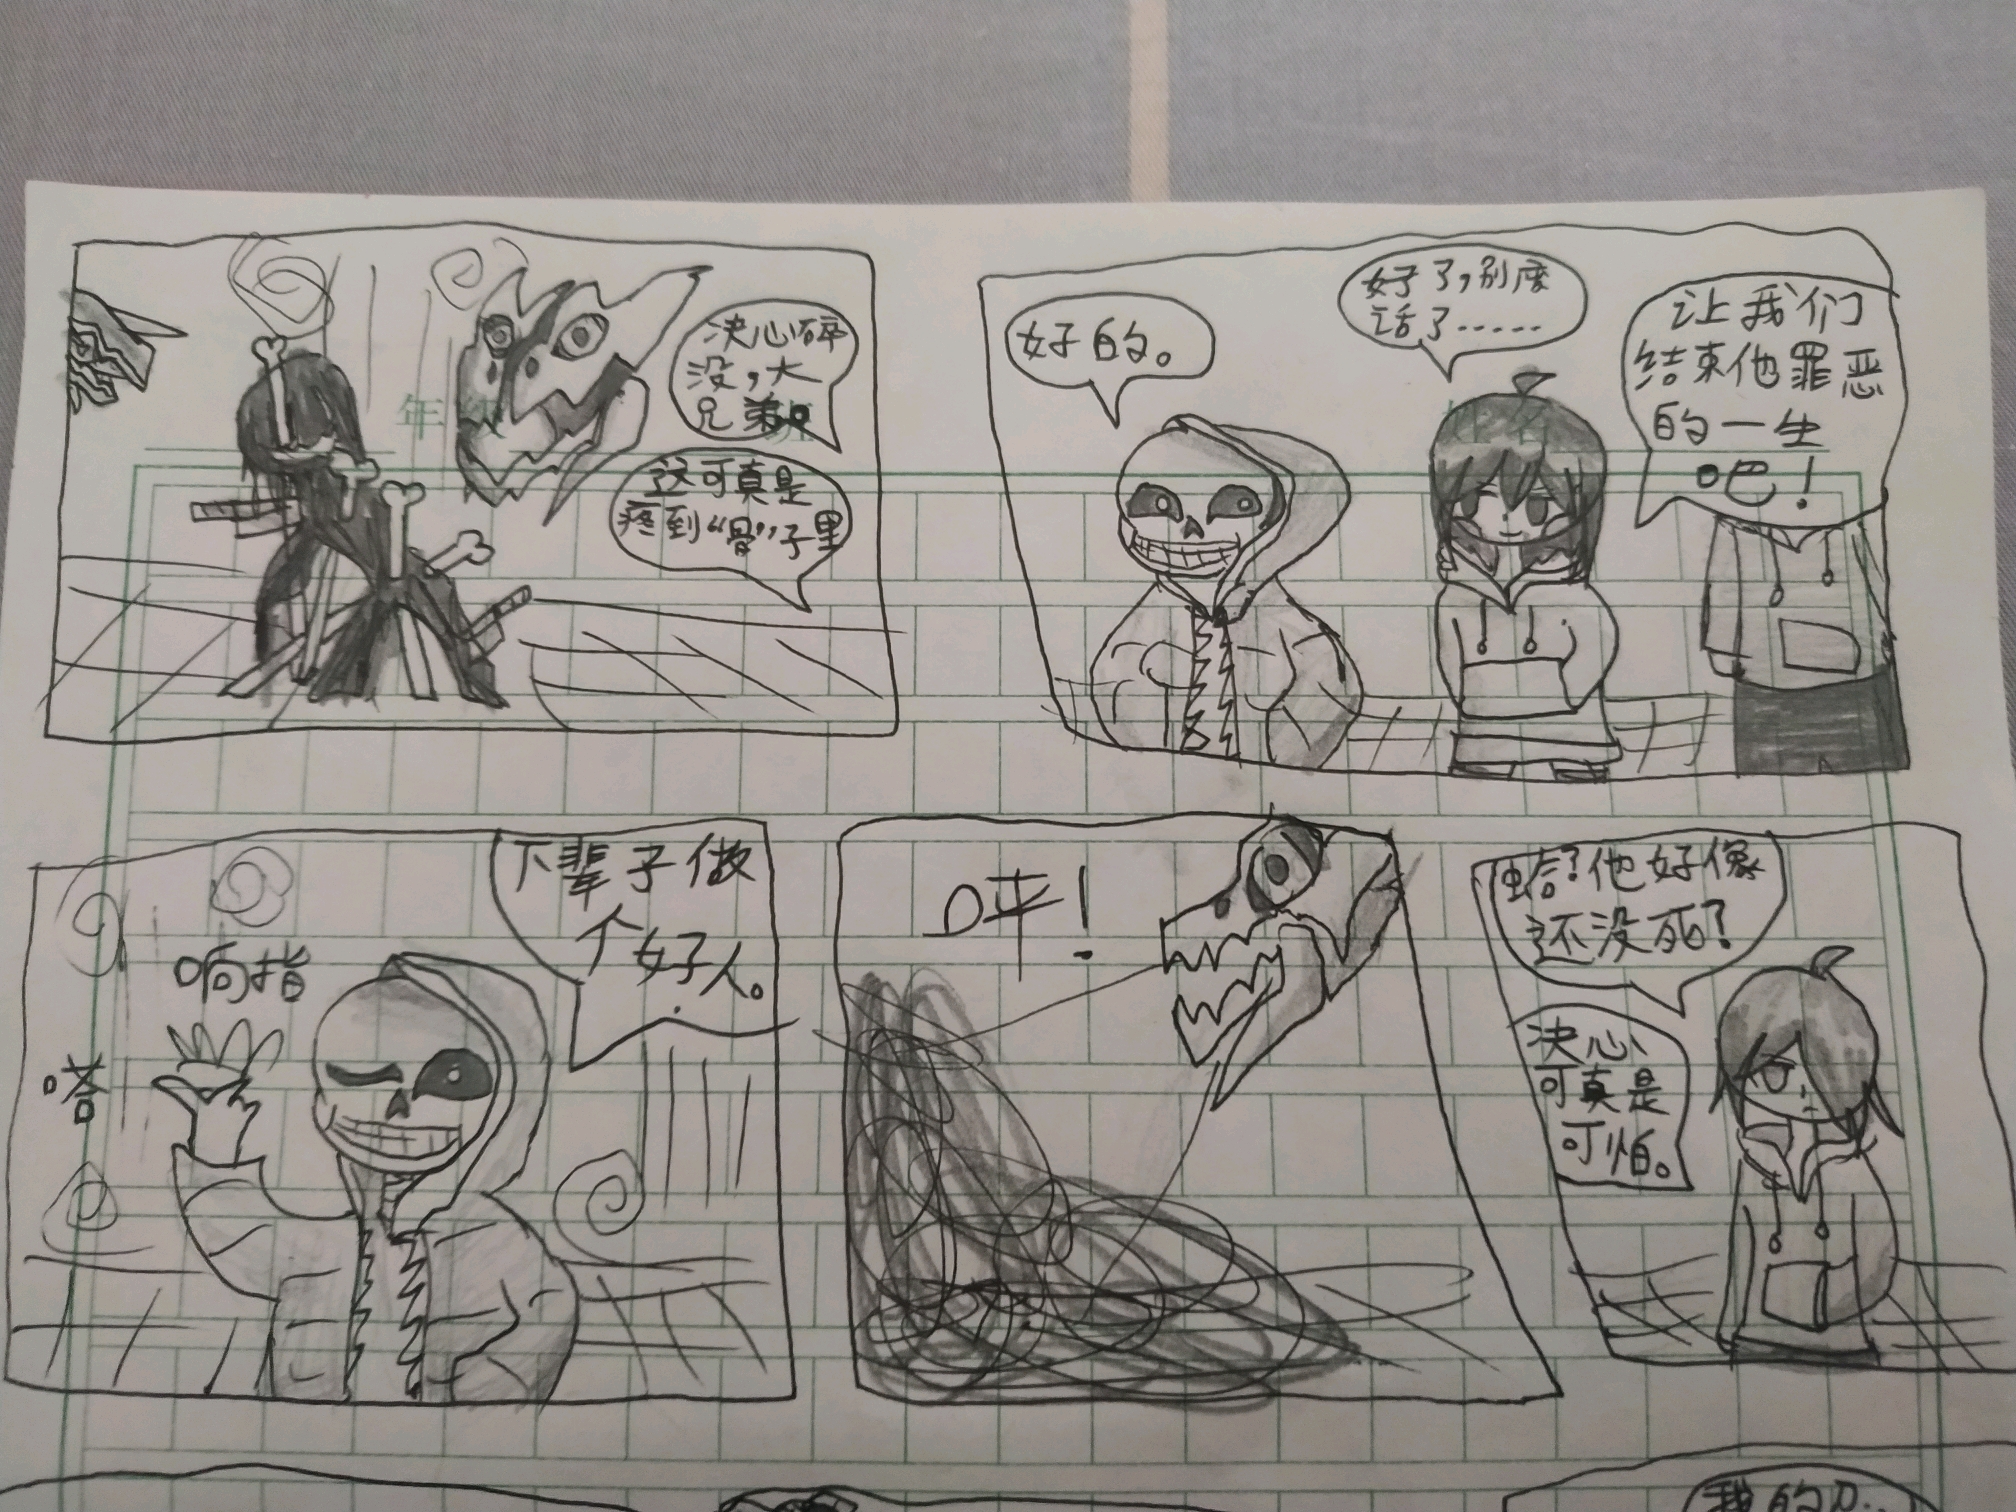 决心碎
没，大
兄弟。
这可真是
疼到“骨”子里
年级
班
好的。
好了，别废
话了……
让我们
结束他罪恶
的一生
吧！
姓名
下辈子做
个好人。
响指
嗒
呯！
蛤？他好像
还没死？
决心
可真是
可怕。
我的刀